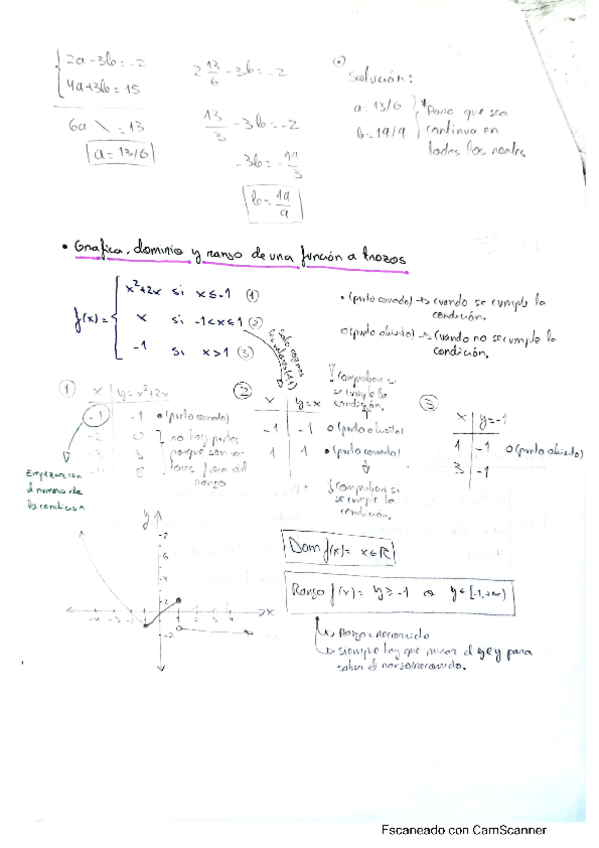 2a-3b=-2
4a+3b=15
6a \ =13
a=13/6
2 13/6 -3b=-2
13/3 -3b=-2
-3b=-19/3
b=19/9
Solución:
a=13/6
b=19/9
*para que sea
continua en
todos los reales
• Grafica, dominio y rango de una función a trozos
f(x)=
x²+2x si x≤-1 (1)
x si -1<x≤1 (2)
-1 si x>1 (3)
•(punto cerrado)→cuando se cumple la
condición.
O(punto abierto)→cuando no se cumple la
condición.
1
x y=x²+2x
-1 -1 •(punto cerrado)
-2 0
-3 3
8
no hay puntos
porque son va-
lores fuera del
rango
Empezar con
el numero de
la condición
2
x y=x
-1 -1 O(punto abierto)
1 1 •(punto cerrado)
comprobar si
se cumple la
condición.
comprobar si
se cumple la
condición.
3
x y=-1
1 -1 O(punto abierto)
3 -1
y
x
Dom f(x)= x∈ℝ
Rango f(x)= y≥-1 o y∈[-1,+∞)
Rango=recorrido
siempre hay que mirar el eje y para
saber el rango/recorrido.
Escaneado con CamScanner